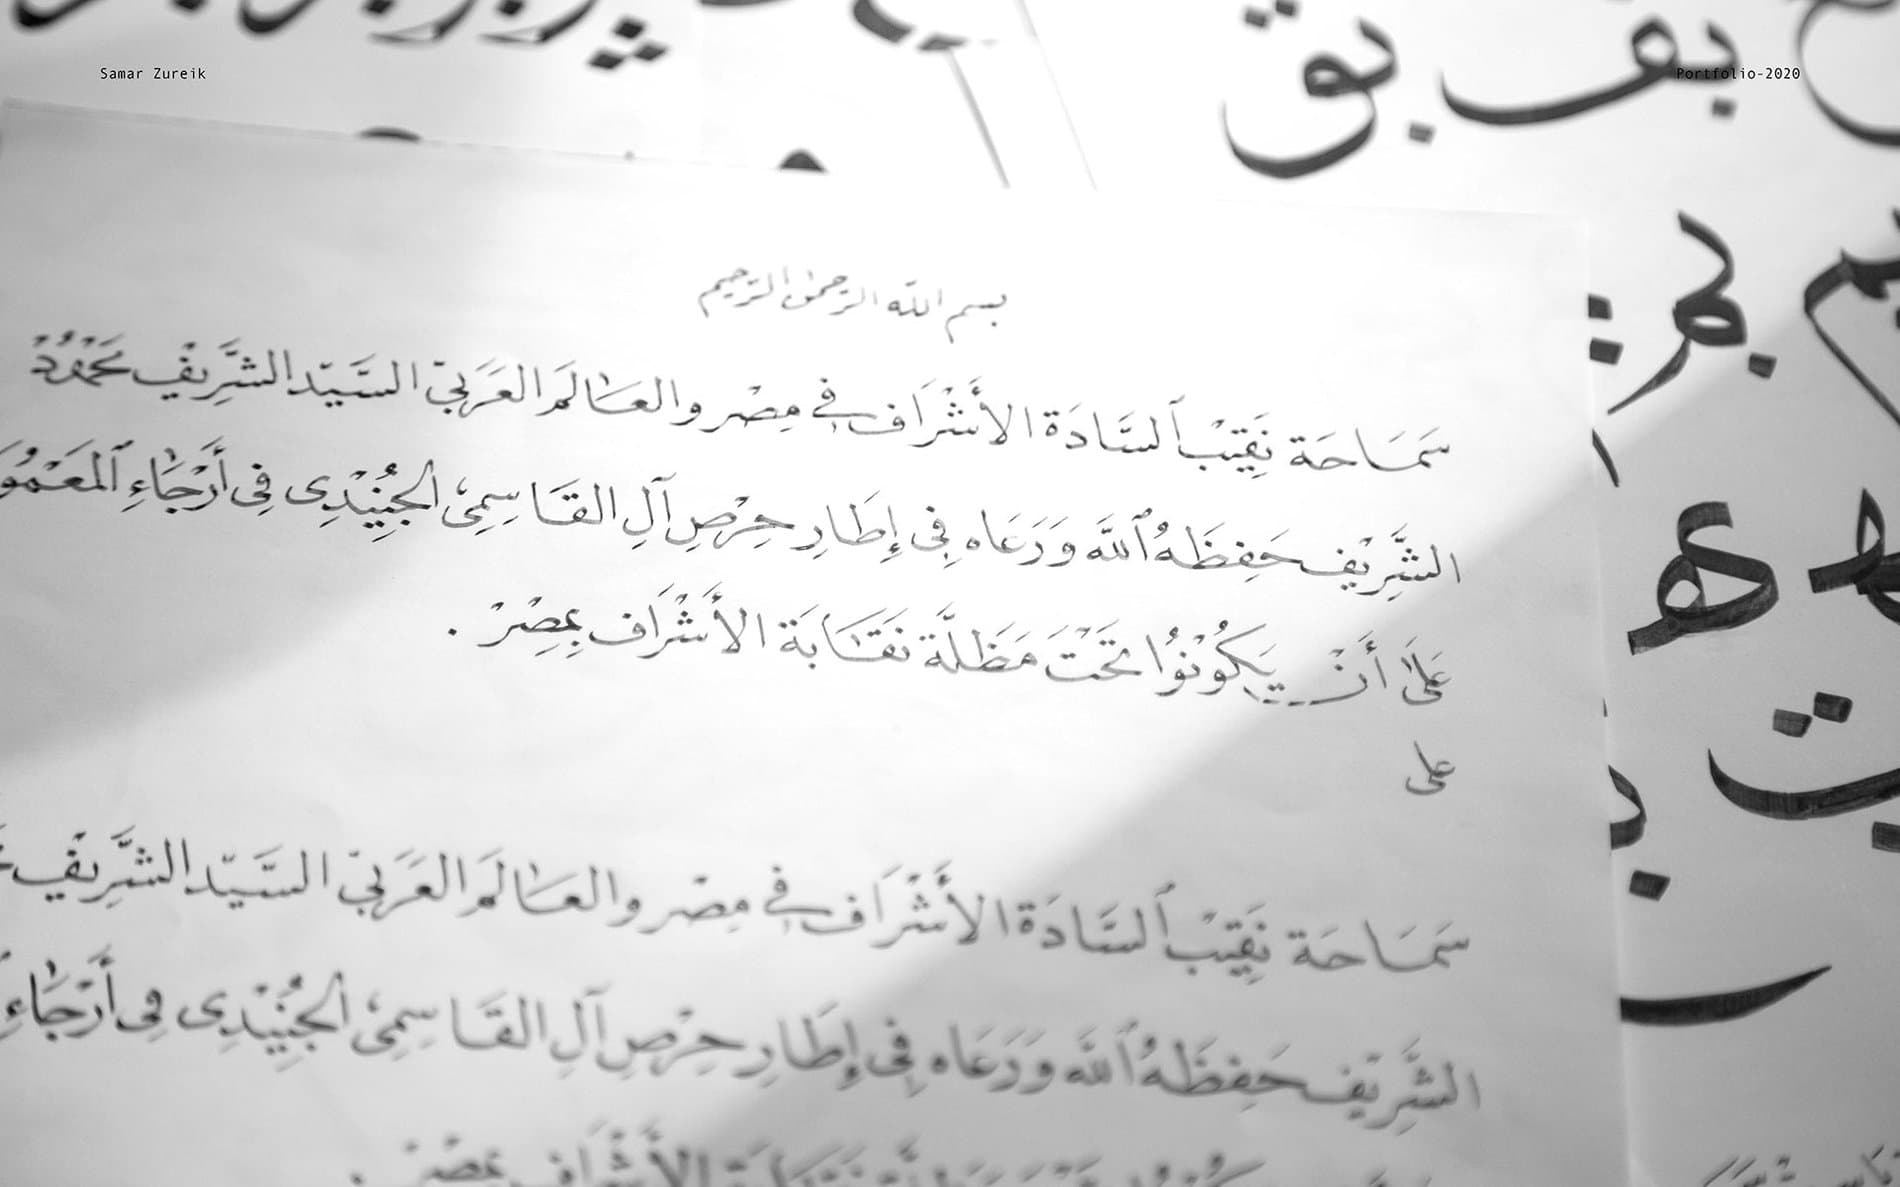 Samar Zureik
Portfolio-2020
بف بق
بسم الله الرحمن الرحيم
سَمَاحَة نَقِيْبْ ٱلسَّادَة الأَشْرَاف في مِصْر والعَالَم العَرَبيّ السَّيّد الشَّرِيْف مَحْمُوْدْ
الشَّرِيْف حَفِظَهُ ٱللَّه وَرَعَاه فِي إِطَارِ حِرْصِ آلِ القَاسِمِيّ الجُنِيْدِى فِى أَرْجَاءِ
عَلَىٰ أَنْ يَكُوْنُوْا تَحْتَ مَظَلَّة نَقَابَة الأَشْرَاف بِمِصْرْ .
على
سَمَاحَة نَقِيْبْ ٱلسَّادَة الأَشْرَاف في مِصْر والعَالَم العَرَبيّ السَّيّد الشَّرِيْف
الشَّرِيْف حَفِظَهُ ٱللَّه وَرَعَاه فِي إِطَارِ حِرْصِ آلِ القَاسِمِيّ الجُنِيْدِى فِى أَرْجَاءِ
الأَشْرَاف بِمِصْرْ .